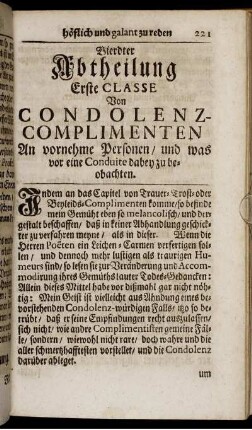 höflich und galant zu reden 221
Vierdter
Abtheilung
Erste CLASSE
Von
CONDOLENZ-
COMPLIMENTEN
An vornehme Personen / und was
vor eine Conduite dabey zu be-
obachten.
Indem an das Capitel von Trauer-Trost-oder
Beyleids-Complimenten komme / so befinde
mein Gemüht eben so melancolisch / und der-
gestalt beschaffen / daß in keiner Abhandlung geschick-
ter zu verfahren meyne / als in dieser. Wenn die
Herren Poëten ein Leichen-Carmen verfertigen sol-
len / und dennoch mehr lustigen als traurigen Hu-
meurs sind / so lesen sie zur Veränderung und Accom-
modirung ihres Gemühts lauter Todes-Gedancken:
Allein dieses Mittel habe vor dißmahl gar nicht nöh-
tig: Mein Geist ist vielleicht aus Ahndung eines be-
vorstehenden Condolenz-würdigen Falls / itzo so be-
trübt / daß er seine Empfindungen recht auszulassen /
sich nicht / wie andre Complimentisten gemeine Fäl-
le / sondern / wiewohl nicht rare / doch wahre und die
aller schmertzhafftesten vorstellet / und die Condolenz
darüber ableget.
um